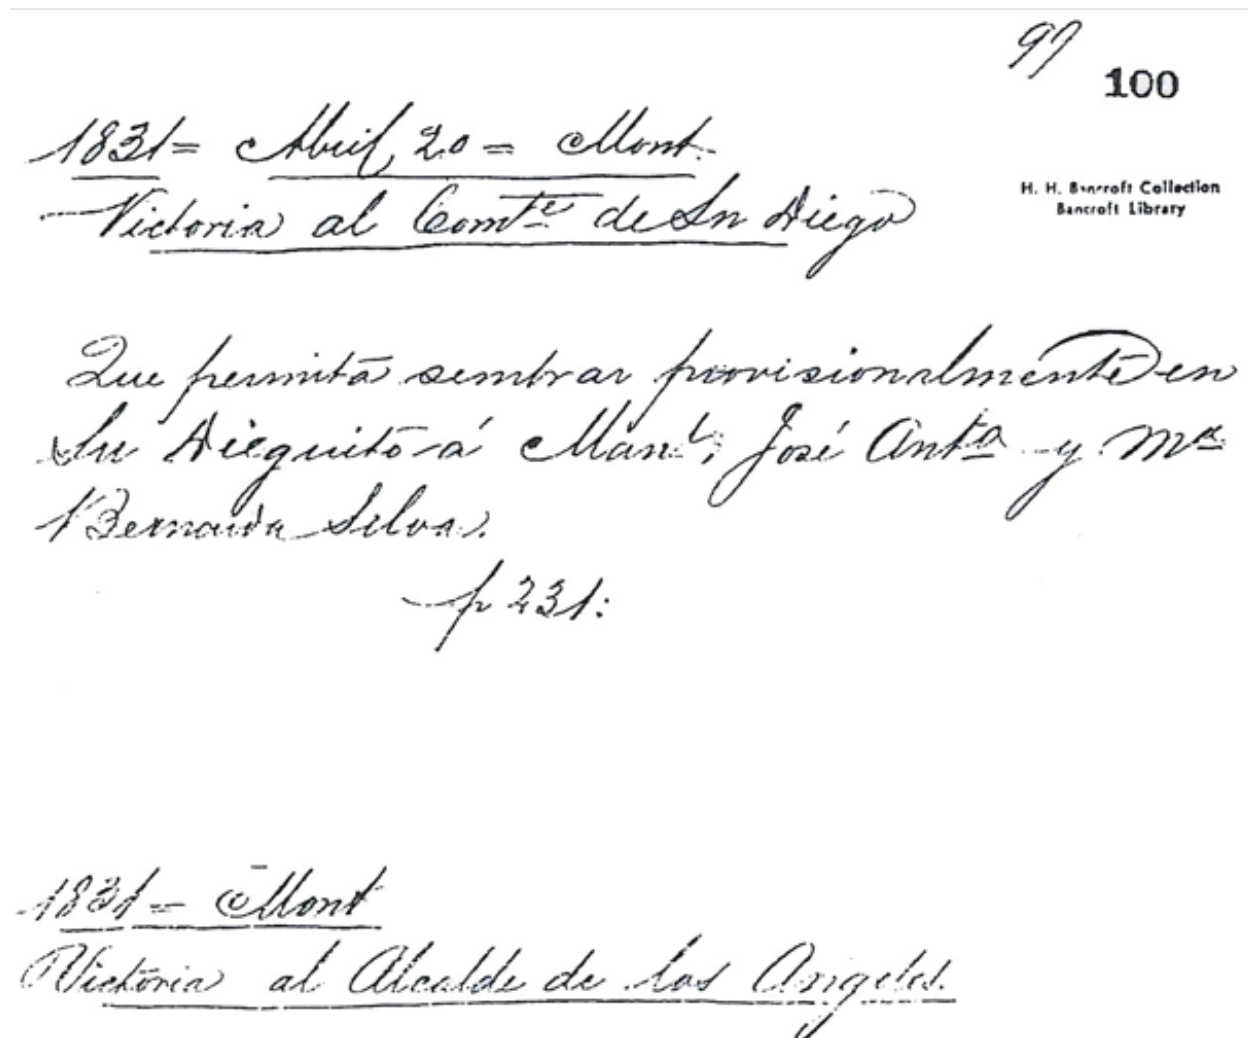 97
100
1831= Abril, 20 = Mont.
H. H. Bancroft Collection
Bancroft Library
Victoria al Comte de Sn Diego
Que permita sembrar provisionalmente en
Sn Dieguito á Manl, José Anta y Ma
Bernarda Silva.
p 231:
1831 = Mont
Victoria al Alcalde de los Angeles.